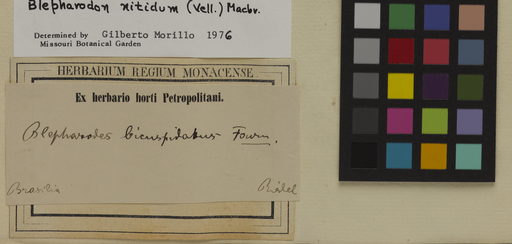 Blepharodon nitidum (Vell.) Macbr.
Determined by Gilberto Morillo 1976
Missouri Botanical Garden
HERBARIUM REGIUM MONACENSE
Ex herbario horti Petropolitani.
Blepharodes bicuspidatus Fourn.
Brasilia
Riedel